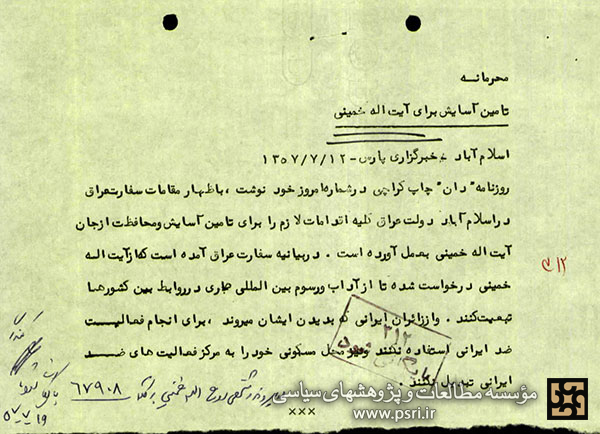 محرمانه
تامین آسایش برای آیت اله خمینی
اسلام آباد خبرگزاری پارس - ۱۳۵۷/۷/۱۲
روزنامه "دان" چاپ کراچی در شماره امروز خود نوشت ، باظهار مقامات سفارت عراق
در اسلام آباد دولت عراق کلیه اقدامات لازم را برای تامین آسایش ومحافظت از جان
آیت اله خمینی بعمل آورده است . در بیانیه سفارت عراق آمده است که از آیت اله
خمینی درخواست شده تا از آداب ورسوم بین المللی جاری در روابط بین کشورها
تبعیت کنند . واز زائران ایرانی که بدیدن ایشان میروند ، برای انجام فعالیت
ضد ایرانی استفاده نکنند ونیز محل سکونی خود را به مرکز فعالیت های ضد
ایرانی تبدیل نکنند .
×××
۳۱۲
۳۱۲
بایگانی شود
۶۷۹۰۸
۵۷/۷/۱۹
مؤسسه مطالعات و پژوهشهای سیاسی
www.psri.ir